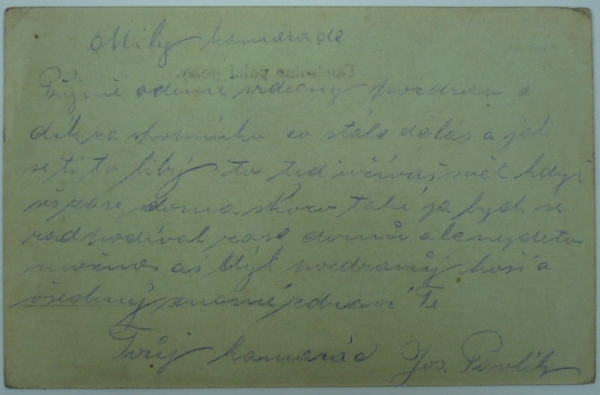 Milý kamaráde
Přijmi odemne srdečný pozdrav a
dík za vzpomínku co stále děláš a jak
se ti to líbý to teď užíváš svět když
seš zase doma skoro také já bych se
rád podíval zase domů ale nejde to
možno až pozdravuj hoši a
všechny známé zdraví Tě
Tvůj kamarád Jos. Pavlík